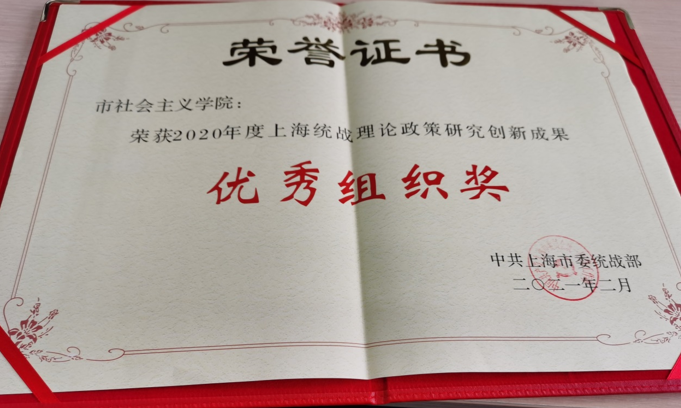 荣誉证书
市社会主义学院：
荣获2020年度上海统战理论政策研究创新成果
优秀组织奖
中共上海市委统战部
二〇二一年二月